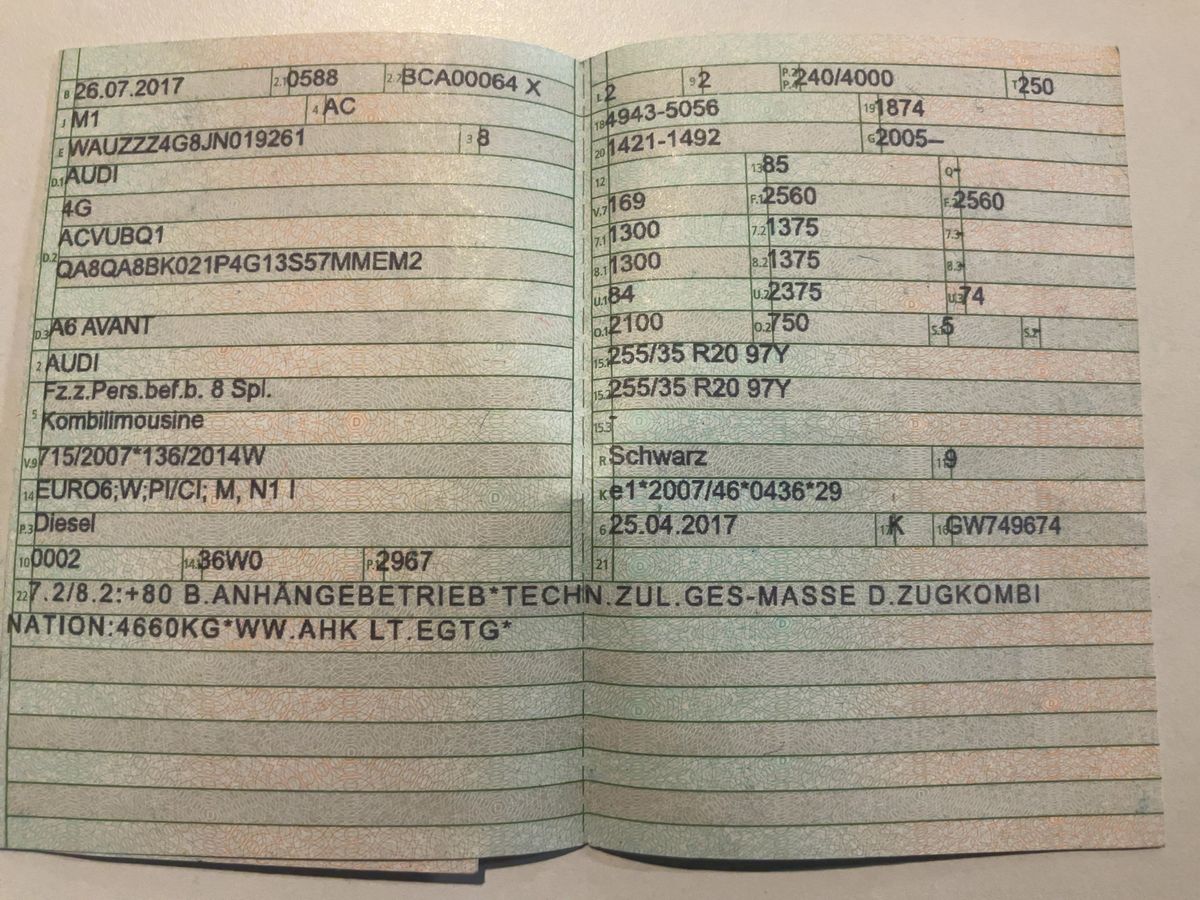 B 26.07.2017 2.1 0588 2.2 BCA00064 X
J M1 4 AC
E WAUZZZ4G8JN019261 3 8
D.1 AUDI
4G
ACVUBQ1
D.2 QA8QA8BK021P4G13S57MMEM2
D.3 A6 AVANT
2 AUDI
Fz.z.Pers.bef.b. 8 Spl.
5 Kombilimousine
V.9 715/2007*136/2014W
14 EURO6;W;PI/CI; M, N1 I
P.3 Diesel
10 0002 14.1 36W0 P.1 2967
L 2 9 2 P.2 P.4 240/4000 T 250
18 4943-5056 19 1874
20 1421-1492 G 2005–
12 13 85 Q -
V.7 169 F.1 2560 F.2 2560
7.1 1300 7.2 1375 7.3 -
8.1 1300 8.2 1375 8.3 -
U.1 84 U.2 2375 U.3 74
O.1 2100 O.2 750 S.1 5 S.2 -
15.1 255/35 R20 97Y
15.2 255/35 R20 97Y
15.3 -
R Schwarz 11 9
K e1*2007/46*0436*29
6 25.04.2017 17 K 16 GW749674
21
22 7.2/8.2:+80 B.ANHÄNGEBETRIEB*TECHN.ZUL.GES-MASSE D.ZUGKOMBI
NATION:4660KG*WW.AHK LT.EGTG*